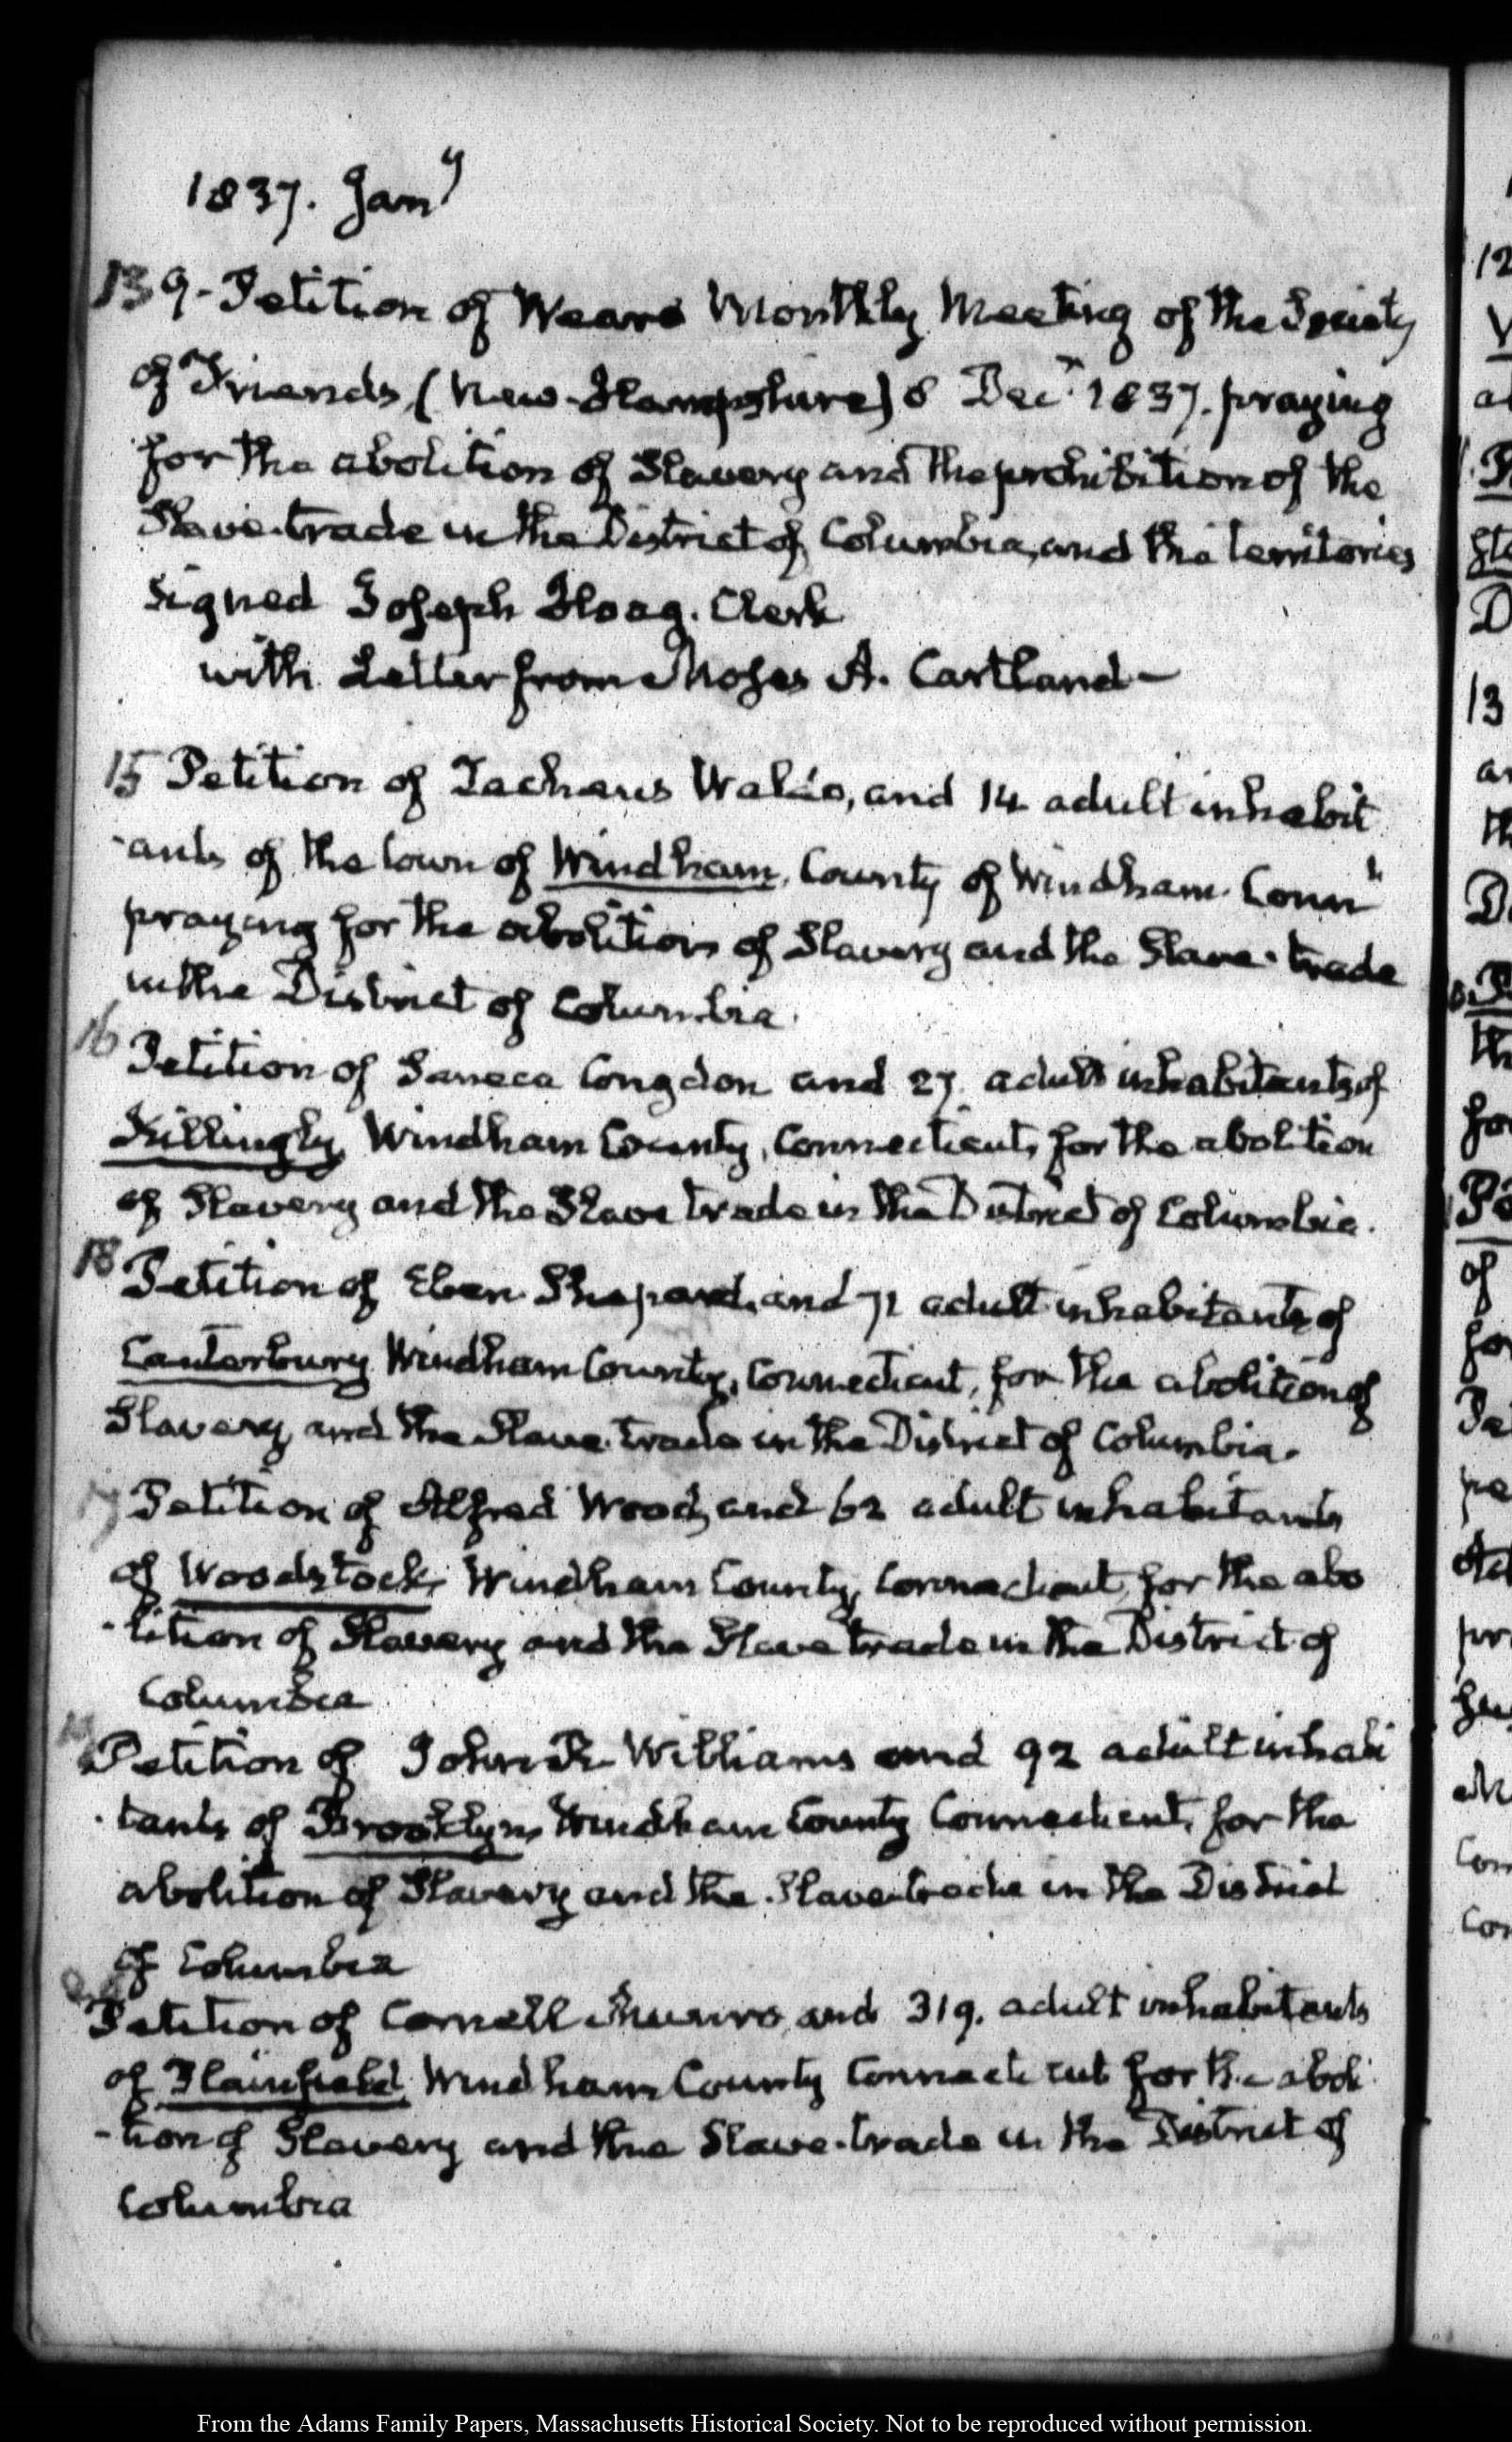 1837. Jany
13 9- Petition of Weare Monthly Meeting of the Society
of Friends (New-Hampshire) 8 Decr 1837. praying
for the abolition of Slavery and the prohibition of the
Slave-trade in the District of Columbia, and the territories
signed Joseph Hoag. Clerk
with Letter from Moses A. Cartland-
15 Petition of Zacheus Waldo, and 14 adult inhabit
-ants of the town of Windham, County of Windham. Connt
praying for the abolition of Slavery and the Slave-trade
in the District of Columbia.
16 Petition of Seneca Congdon and 27 adult inhabitants of
Killingly, Windham County, Connecticut, for the abolition
of Slavery and the Slave trade in the District of Columbia.
18 Petition of Eben Shepard, and 71 adult inhabitants of
Canterbury Windham County, Connecticut, for the abolition of
Slavery, and the Slave trade in the District of Columbia.
17 Petition of Alfred Wood, and 62 adult inhabitants
of Woodstock, Windham County, Connecticut, for the abo
-lition of Slavery and the Slave trade in the District of
Columbia
Petition of John R Williams and 92 adult inhabi
-tants of Brooklyn, Windham County Connecticut, for the
abolition of Slavery and the Slave-trade in the District
of Columbia
Petition of Cornell Munro, and 319. adult inhabitants
of Plainfield, Windham County Connecticut for the aboli
-tion of Slavery and the Slave-trade in the District of
Columbia
From the Adams Family Papers, Massachusetts Historical Society. Not to be reproduced without permission.